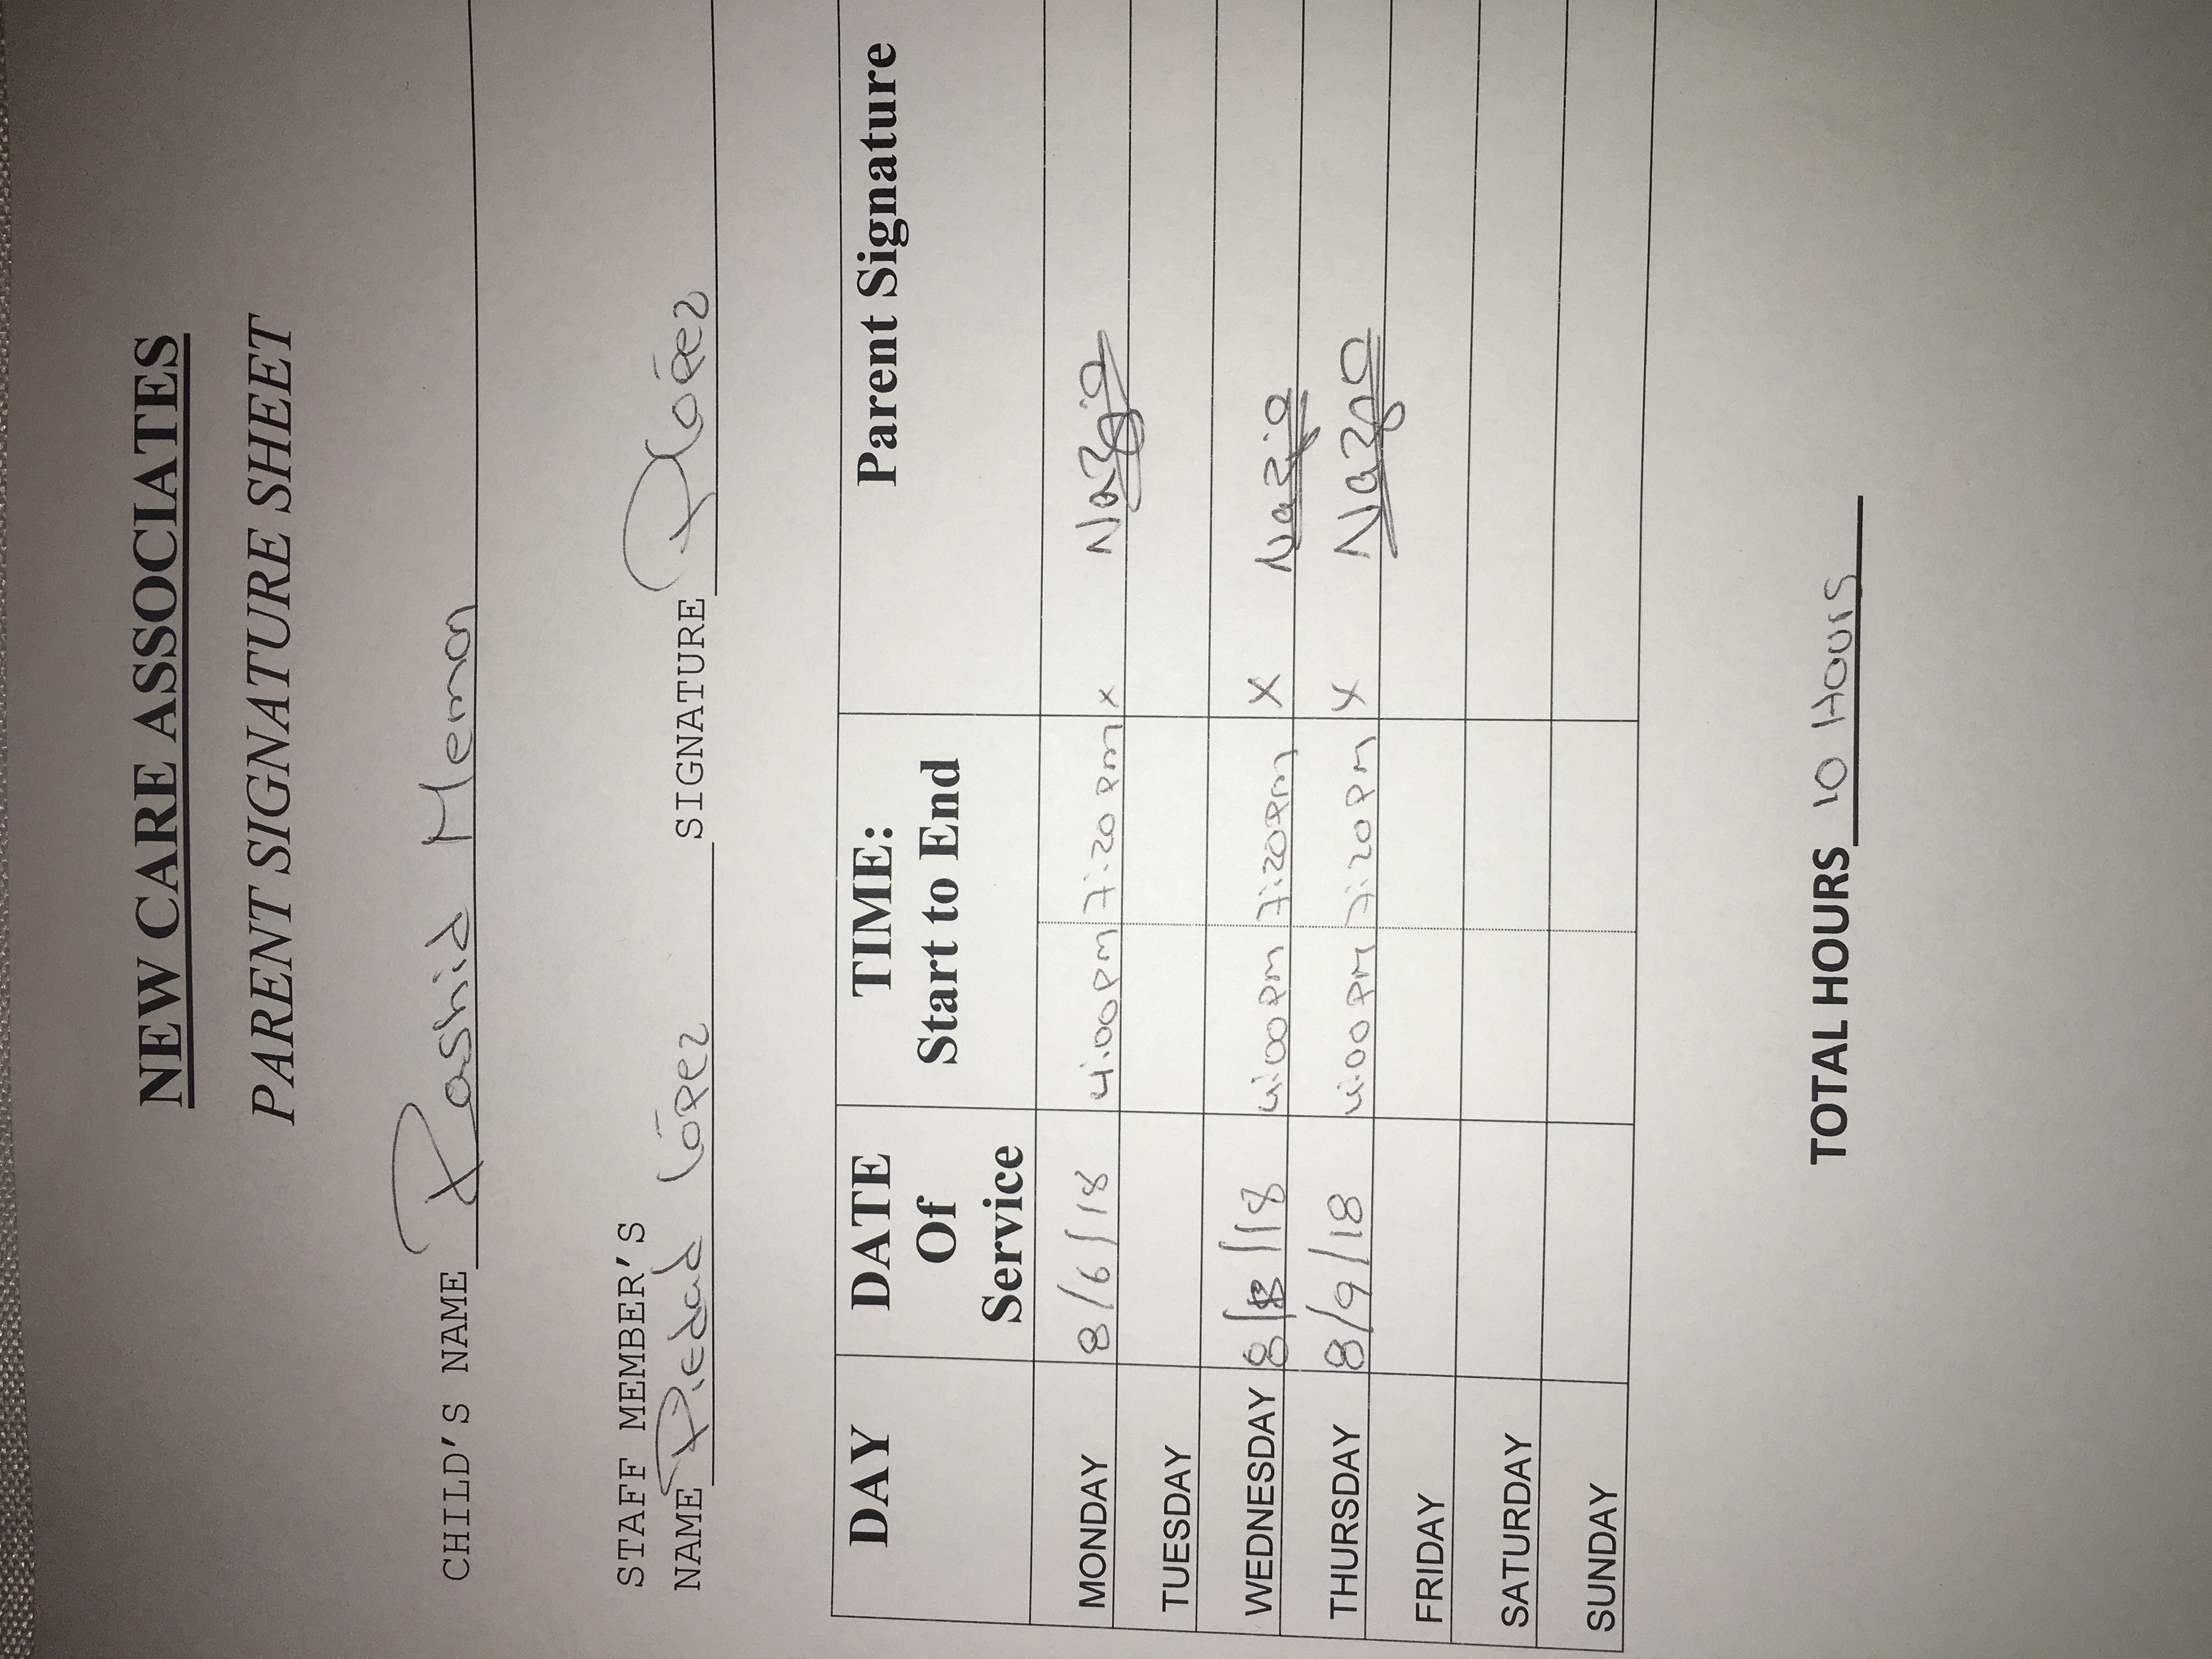 NEW CARE ASSOCIATES
PARENT SIGNATURE SHEET
CHILD'S NAME Rashid Memon
STAFF MEMBER'S
NAME Piedad López SIGNATURE PLópez
DAY DATE Of Service TIME: Start to End Parent Signature
MONDAY 8/6/18 4:00pm 7:20 pm x Nazia
TUESDAY
WEDNESDAY 8/8/18 4:00pm 7:20pm X Nazia
THURSDAY 8/9/18 4:00 pm 7:20pm X Nazia
FRIDAY
SATURDAY
SUNDAY
TOTAL HOURS 10 Hours